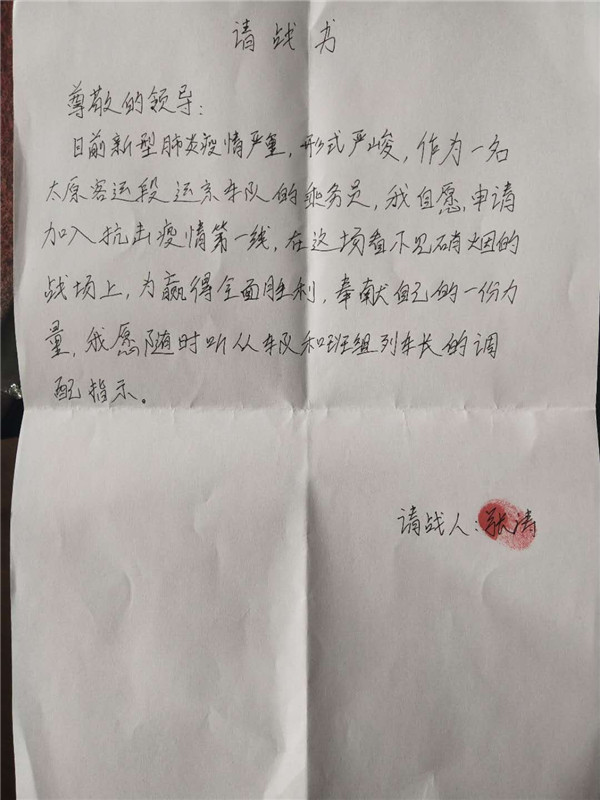 请战书
尊敬的领导:
目前新型肺炎疫情严重，形式严峻，作为一名
太原客运段运京车队的乘务员，我自愿申请
加入抗击疫情第一线，在这场看不见硝烟的
战场上，为赢得全面胜利，奉献自己的一份力
量，我愿随时听从车队和班组列车长的调
配指示。
请战人:张涛